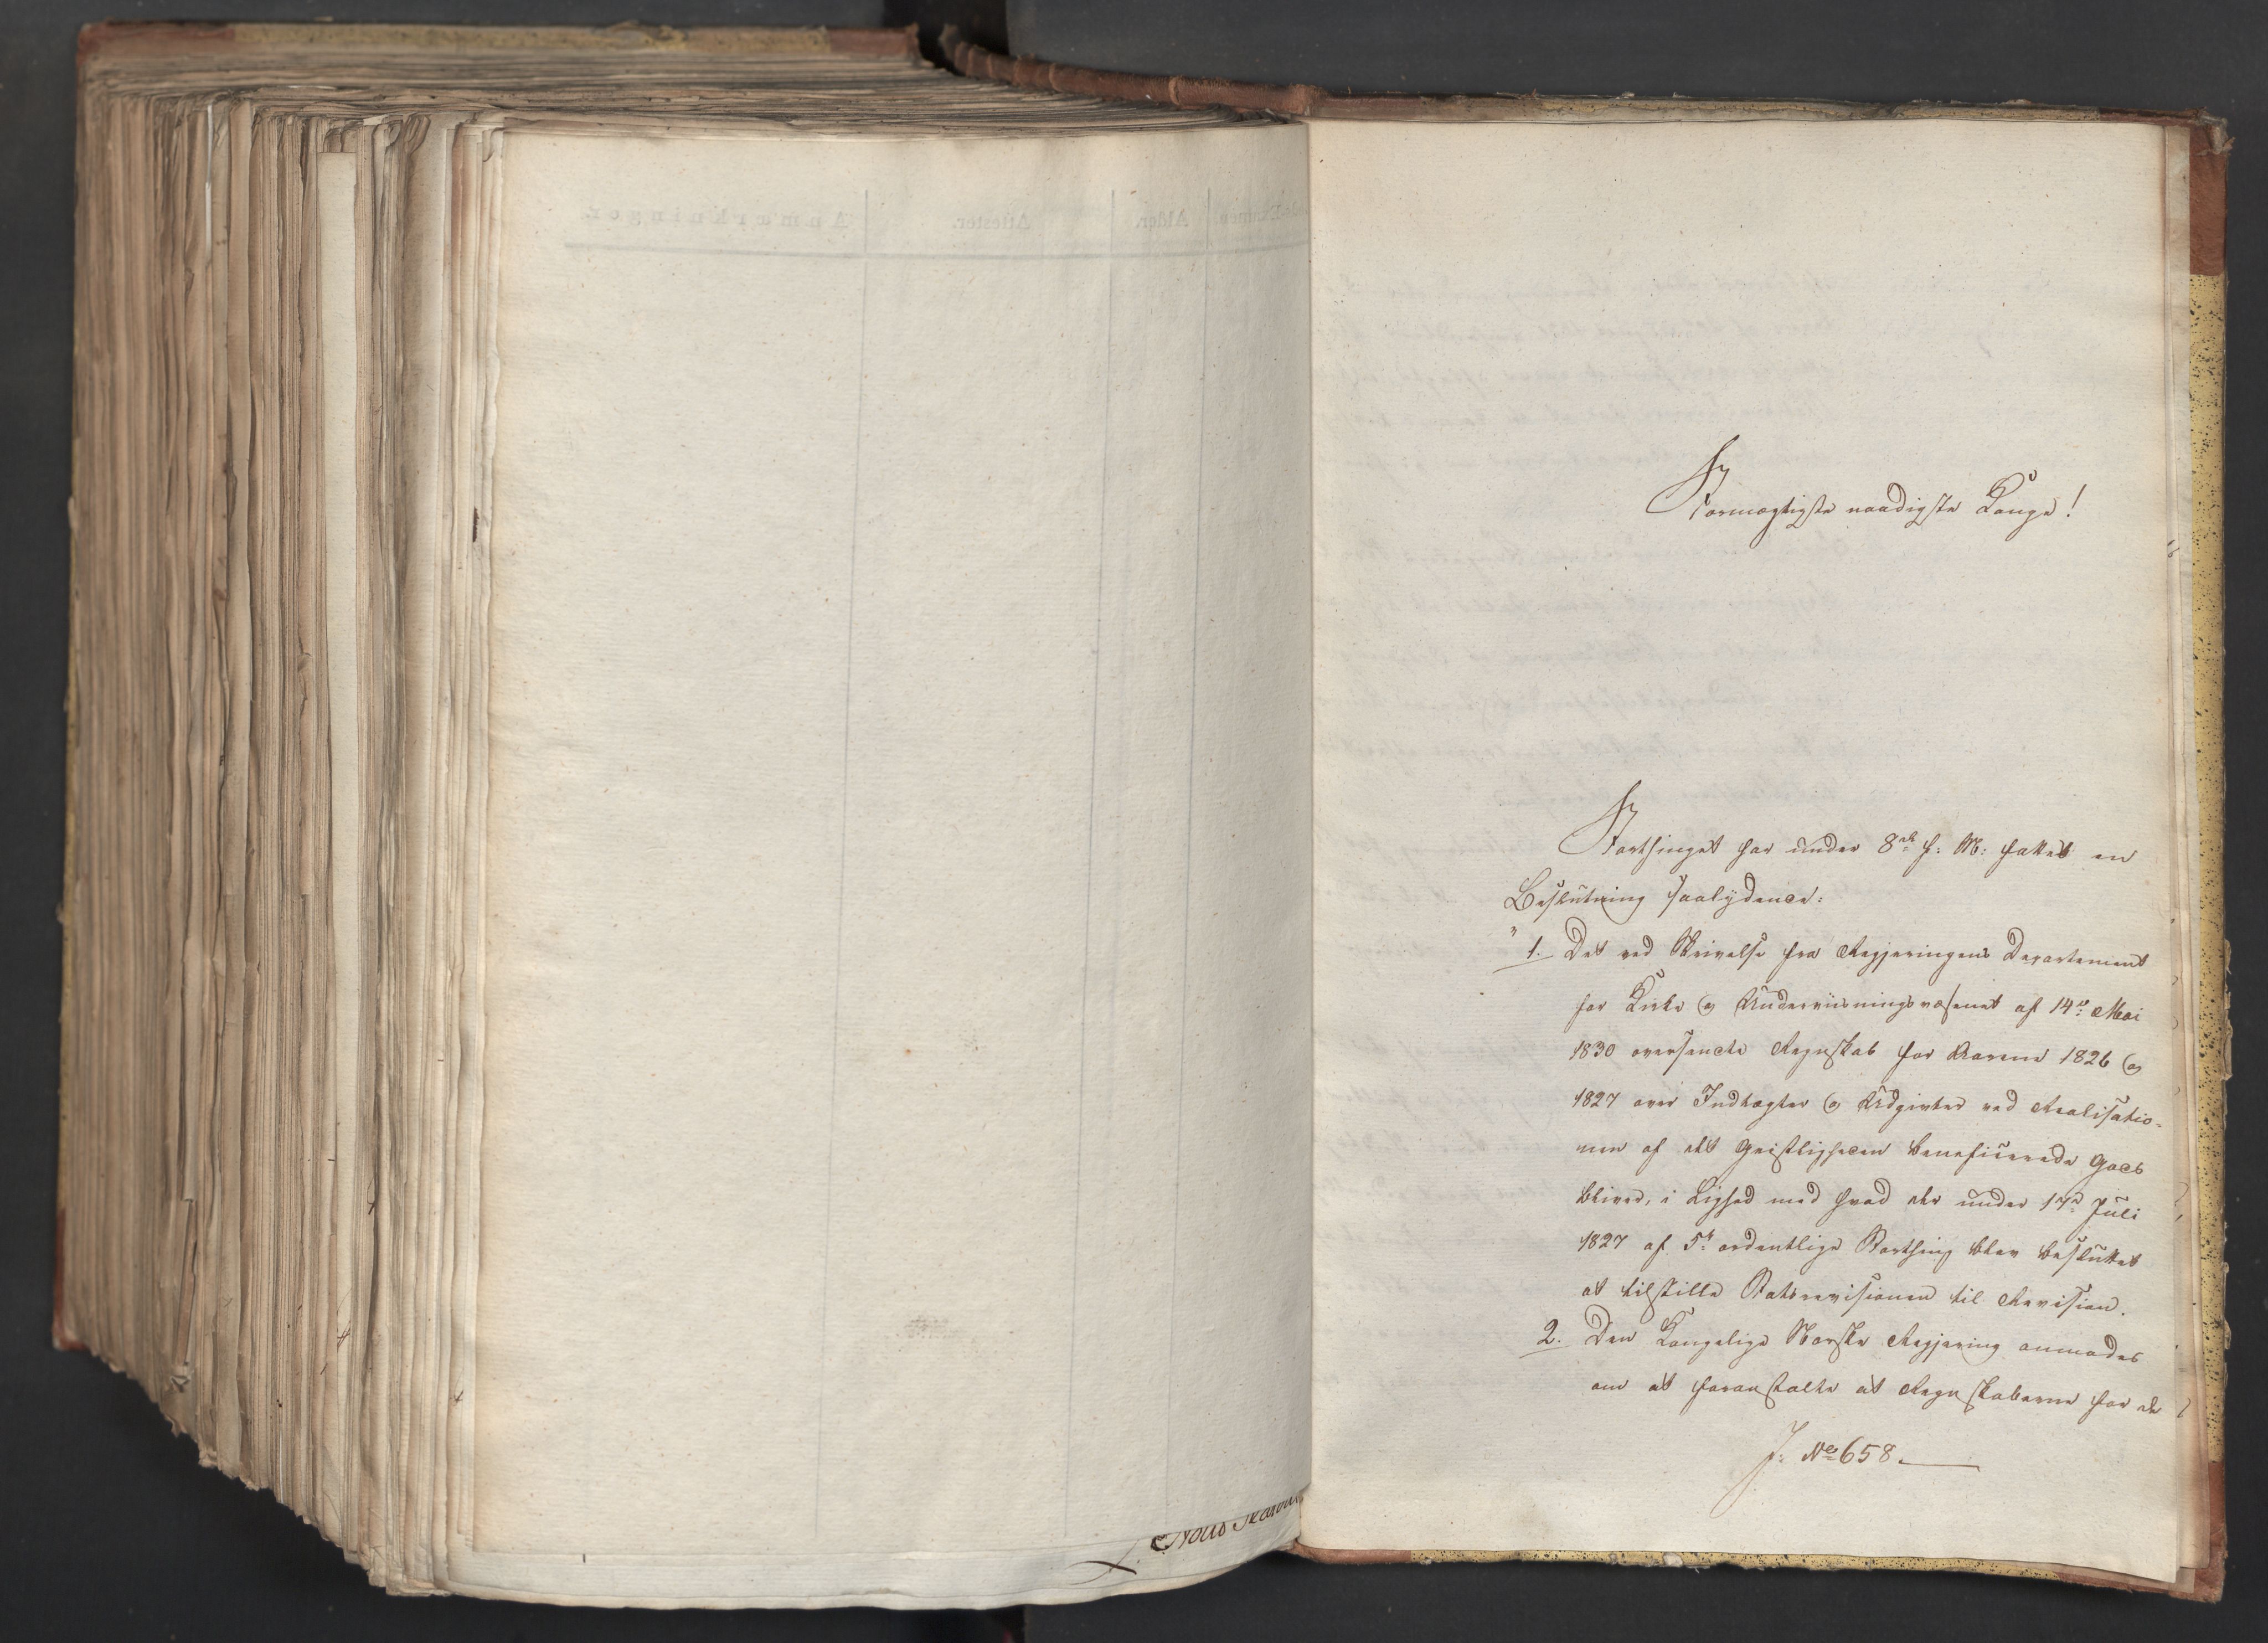 Anmærkninger.
Attester.
Alder.
Stormægtigste naadigste Konge!
Storthinget har under 8de f: M: fattet en
Beslutning saalydende:
" 1. Det ved Skrivelse fra Regjeringens Departement
for Kirke og Underviisningsvæsenet af 14de Mai
1830 oversendte Regnskab for Aarene 1826 og
1827 over Indtægter og Udgivter ved Realisatio-
nen af det Geistligheden beneficerede Gods
bliver, i Lighed med hvad der under 17de Juli
1827 af 5te ordentlige Storthing blev besluttet
at tilstille Statsrevisionen til Revision.
2. Den Kongelige Norske Regjering anmodes
om at foranstalte at Regnskaberne for de
J: No 658.